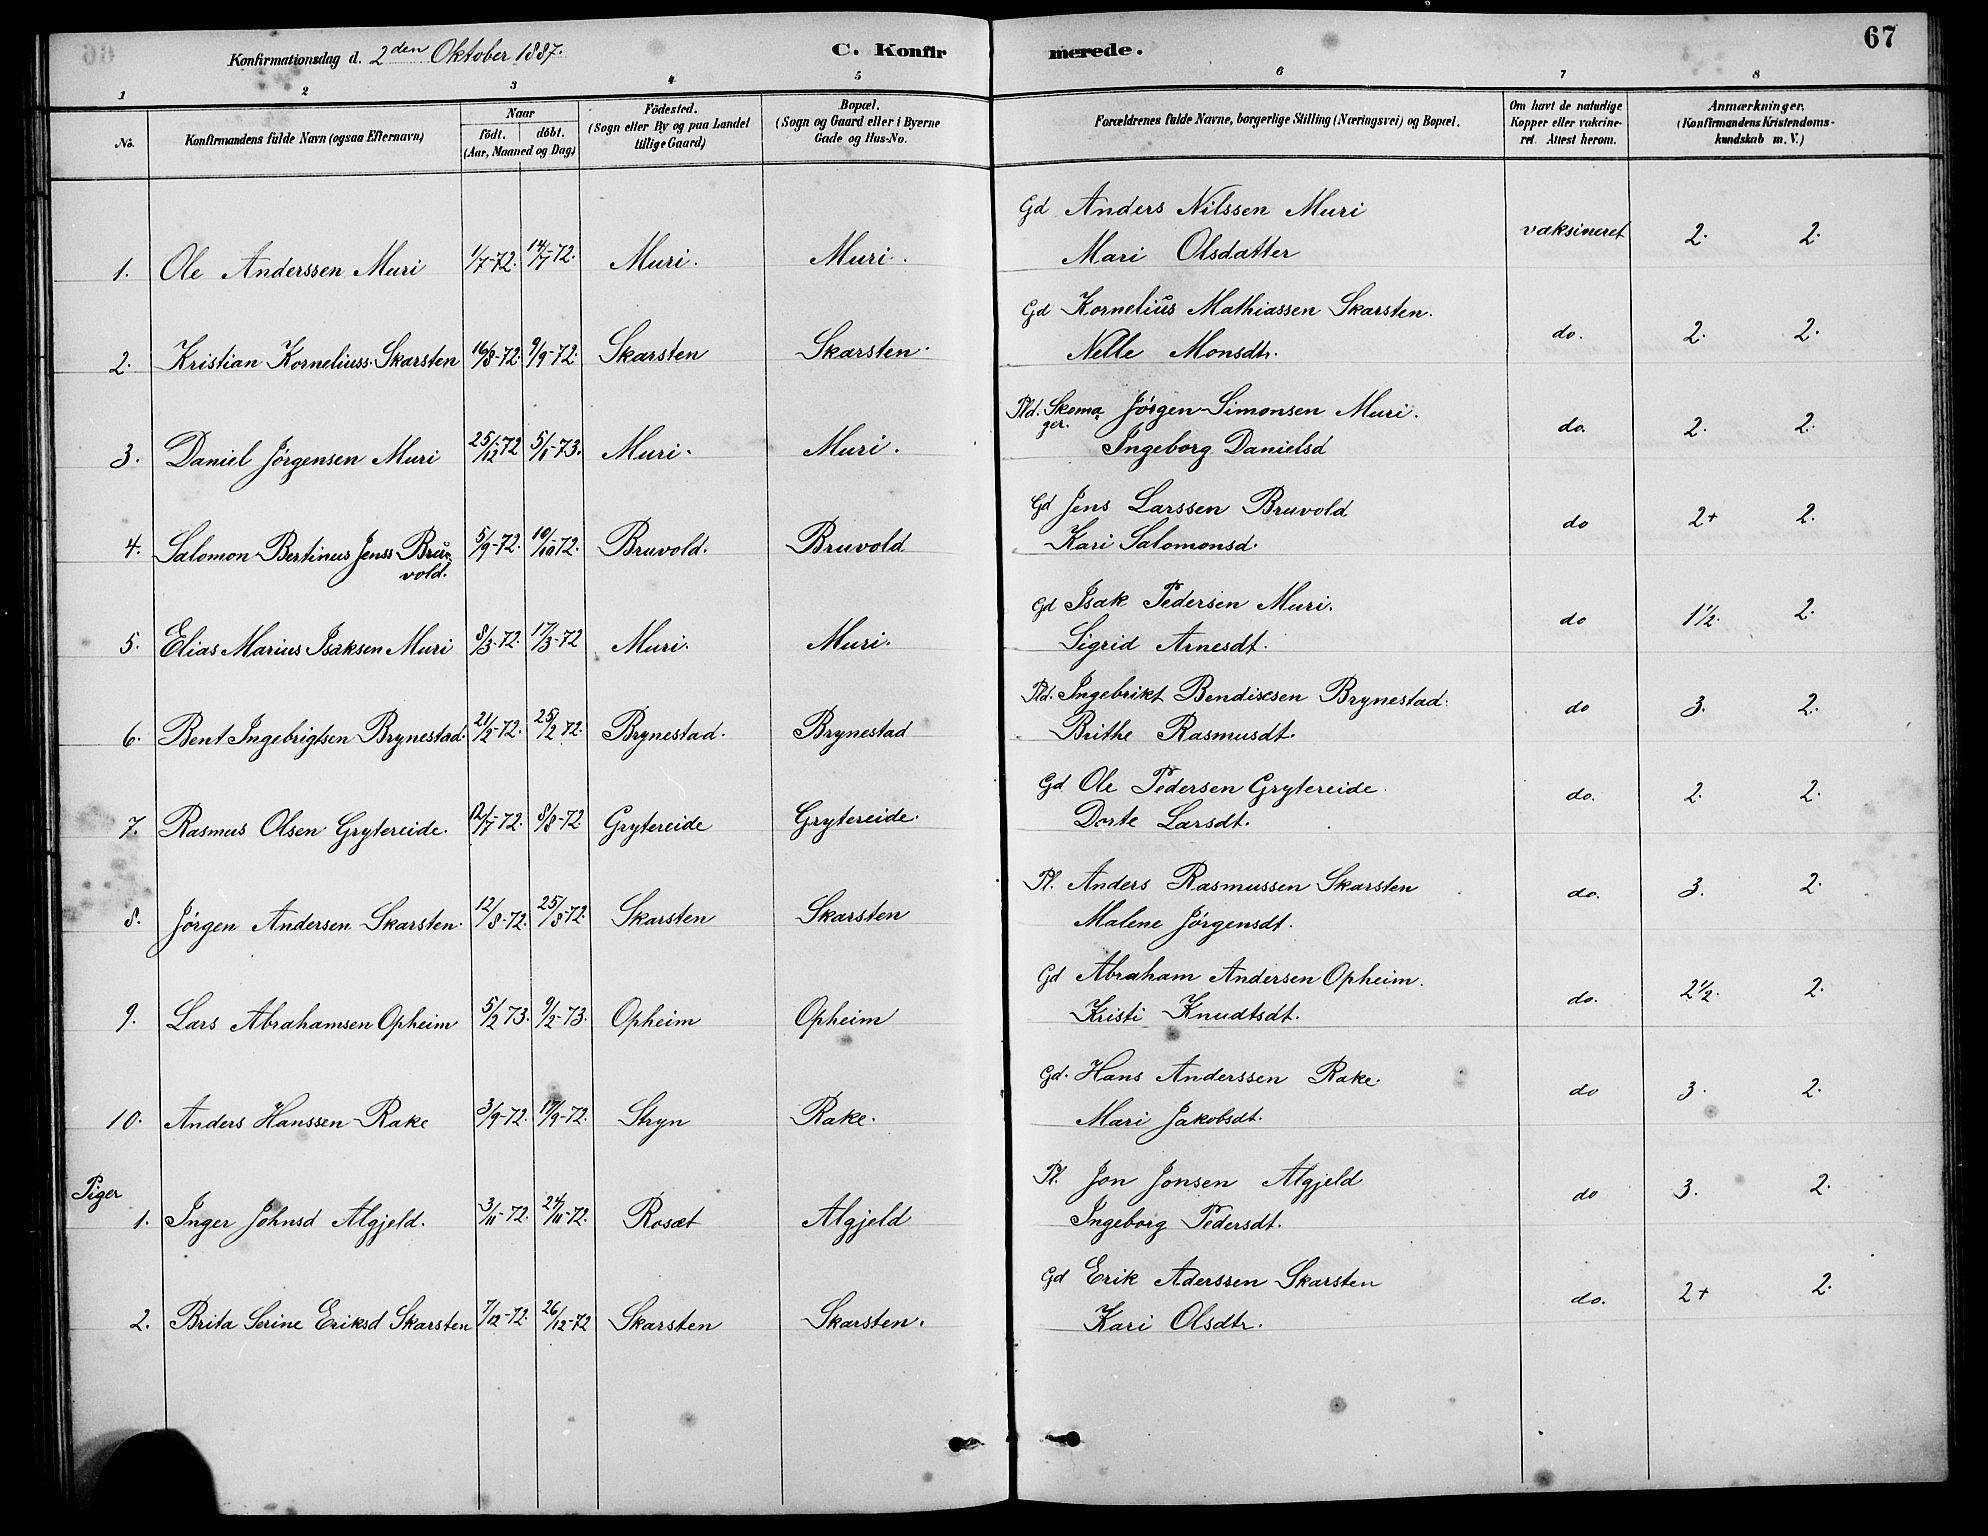 Konfirmationsdag d. 2den Oktober 1887. C. Konfirmerede. 67
1 2 3 4 5 6 7 8
No. Konfirmandens fulde Navn (ogsaa Efternavn) Naar födt. döbt. (Aar, Maaned og Dag) Födested. (Sogn eller By og paa Landet tillige Gaard) Bopæl. (Sogn og Gaard eller i Byerne Gade og Hus-No. Forældrenes fulde Navne, borgerlige Stilling (Næringsvei) og Bopæl. Om havt de naturlige Kopper eller vakcineret. Attest herom. Anmærkninger. (Konfirmandens Kristendomskundskab m. V.)
1. Ole Anderssen Muri 1/7-72. 14/7-72. Muri. Muri. Gd Anders Nilssen Muri vaksineret 2. 2.
Mari Olsdatter
2. Kristian Korneliuss. Skarsten 16/8-72. 9/9-72. Skarsten Skarsten. Gd Kornelius Mathiassen Skarsten. do. 2. 2.
Nelle Monsdtr.
3. Daniel Jörgensen Muri 25/12-72 5/1-73. Muri. Muri. Pld. Skomager. Jörgen Simonsen Muri. do. 2. 2.
Ingeborg Danielsd
4. Salomon Bertinus Jenss Bruvold. 5/9-72. 10/10-72. Bruvold. Bruvold Gd Jens Larssen Bruvold do 2+ 2.
Kari Salomonsd.
5. Elias Marius Isaksen Muri 8/3-72. 17/3-72 Muri. Muri. Gd Isak Pedersen Muri. do 1½. 2.
Sigrid Arnesdt.
6. Bent Ingebrigtsen Brynestad. 21/2-72. 25/2-72. Brynestad. Brynestad Pld. Ingebrikt Bendixsen Brynestad. do 3. 2.
Brithe Rasmusdt.
7. Rasmus Olsen Grytereide. 12/7-72. 8/8-72 Grytereide Grytereide. Gd Ole Pedersen Grytereide. do. 2. 2.
Dorte Larsdt.
8. Jörgen Andersen Skarsten. 12/8-72. 25/8-72. Skarsten Skarsten Pl. Anders Rasmussen Skarsten do. 3. 2.
Malene Jörgensdt.
9. Lars Abrahamsen Opheim 5/2-73. 9/2-73. Opheim Opheim Gd Abraham Andersen Opheim. do. 2½. 2.
Kristi Knudtsdt.
10. Anders Hanssen Rake 3/9-72. 17/9-72. Stryn Rake. Gd. Hans Anderssen Rake. do 3. 2.
Mari Jakobsdt.
Piger
1. Inger Johnsd Algjeld. 3/11-72. 24/11-72. Rosæt Algjeld Pl. Jon Jonsen Algjeld do 3. 2.
Ingeborg Pedersdt.
2. Brita Serine Eriksd Skarsten 7/12-72. 26/12-72 Skarsten Skarsten. Gd Erik Aderssen Skarsten do. 2+ 2.
Kari Olsdtr.